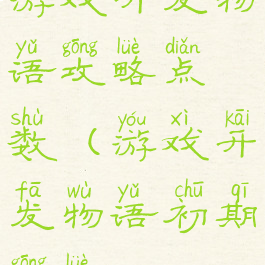 游戏开发物
yǔ gōng lüè diǎn
语攻略点
shù yóu xì kāi
数（游戏开
fā wù yǔ chū qī
发物语初期
gōng lüè